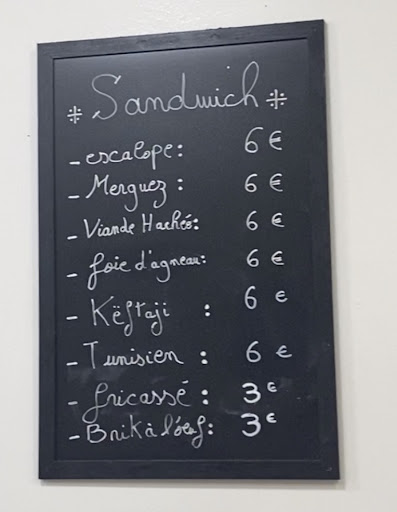 Sandwich
- escalope: 6 €
- Merguez : 6 €
- Viande Hachés: 6 €
- foie d'agneau: 6 €
- Këftaji : 6 €
- Tunisien : 6 €
- fricassé : 3 €
- Brik à l'œuf: 3 €